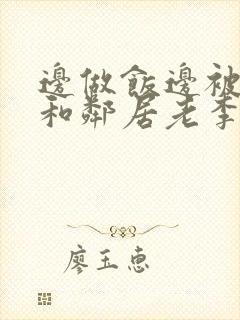 邊做飯邊被
和鄰居老李
廖玉惠